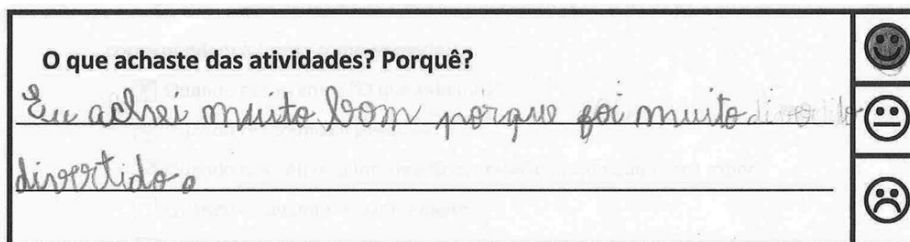 O que achaste das atividades? Porquê?
Eu achei muito bom porque foi muito
divertido.